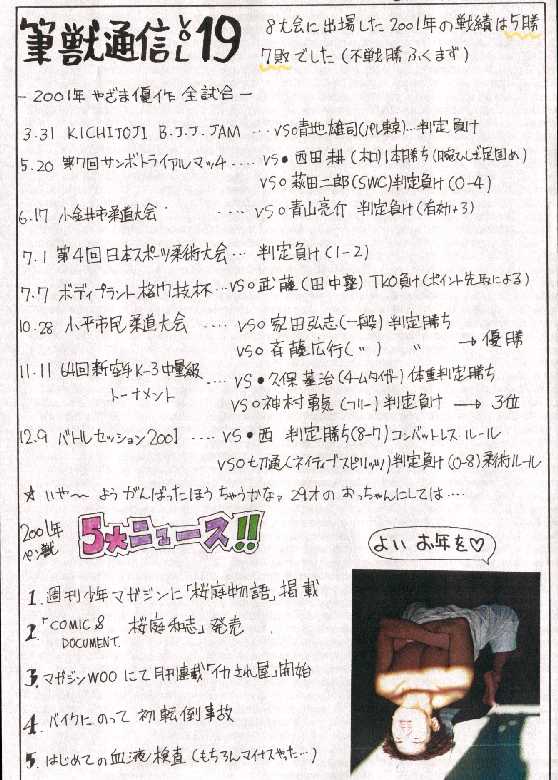 筆獣通信 VOL 19
8大会に出場した2001年の戦績は5勝
7敗でした(不戦勝ふくまず)
－2001年 やざま優作 全試合－
3.31 KICHIJOJI B.J.J.JAM … VS○青地雄司(PUREBRED東京)… 判定負け
5.20 第7回サンボトライアルマッチ …… VS●西田耕(木口)1本勝ち(腕ひしぎ足固め)
VS○萩田二郎(SWC)判定負け(0-4)
6.17 小金井市柔道大会 …… VS○青山亮介 判定負け(有効+3)
7.1 第4回日本スポーツ柔術大会 … 判定負け(1-2)
7.7 ボディプラント格闘技杯 … VS○武藤(田中塾)TKO負け(ポイント先取による)
10.28 小平市民柔道大会 …… VS○家田弘志(一段)判定勝ち
VS○斉藤広行(〃) 〃 → 優勝
11.11 64回新空手K-3中量級
トーナメント
…… VS●久保基治(チームタイガー)体重判定勝ち
VS○神村勇気(フリー)判定負け → 3位
12.9 バトルセッション2001 …… VS●西 判定勝ち(8-7)コンバットレスルール
(ネイティブスピリッツ)判定負け(0-8)柔術ルール
☆いや〜 ようがんばったほうちゃうかなァ 29才のおっちゃんにしては…
2001年
ペン獣
5大ニュース!!
よい お年を♡
1. 週刊少年マガジンに「桜庭物語」掲載
2.「COMIC & DOCUMENT. 桜庭和志」発売
3. マガジンWOOにて月刊連載「イカされ屋」開始
4. バイクにのって初転倒事故
5. はじめての血液検査(もちろんマイナスやった…)